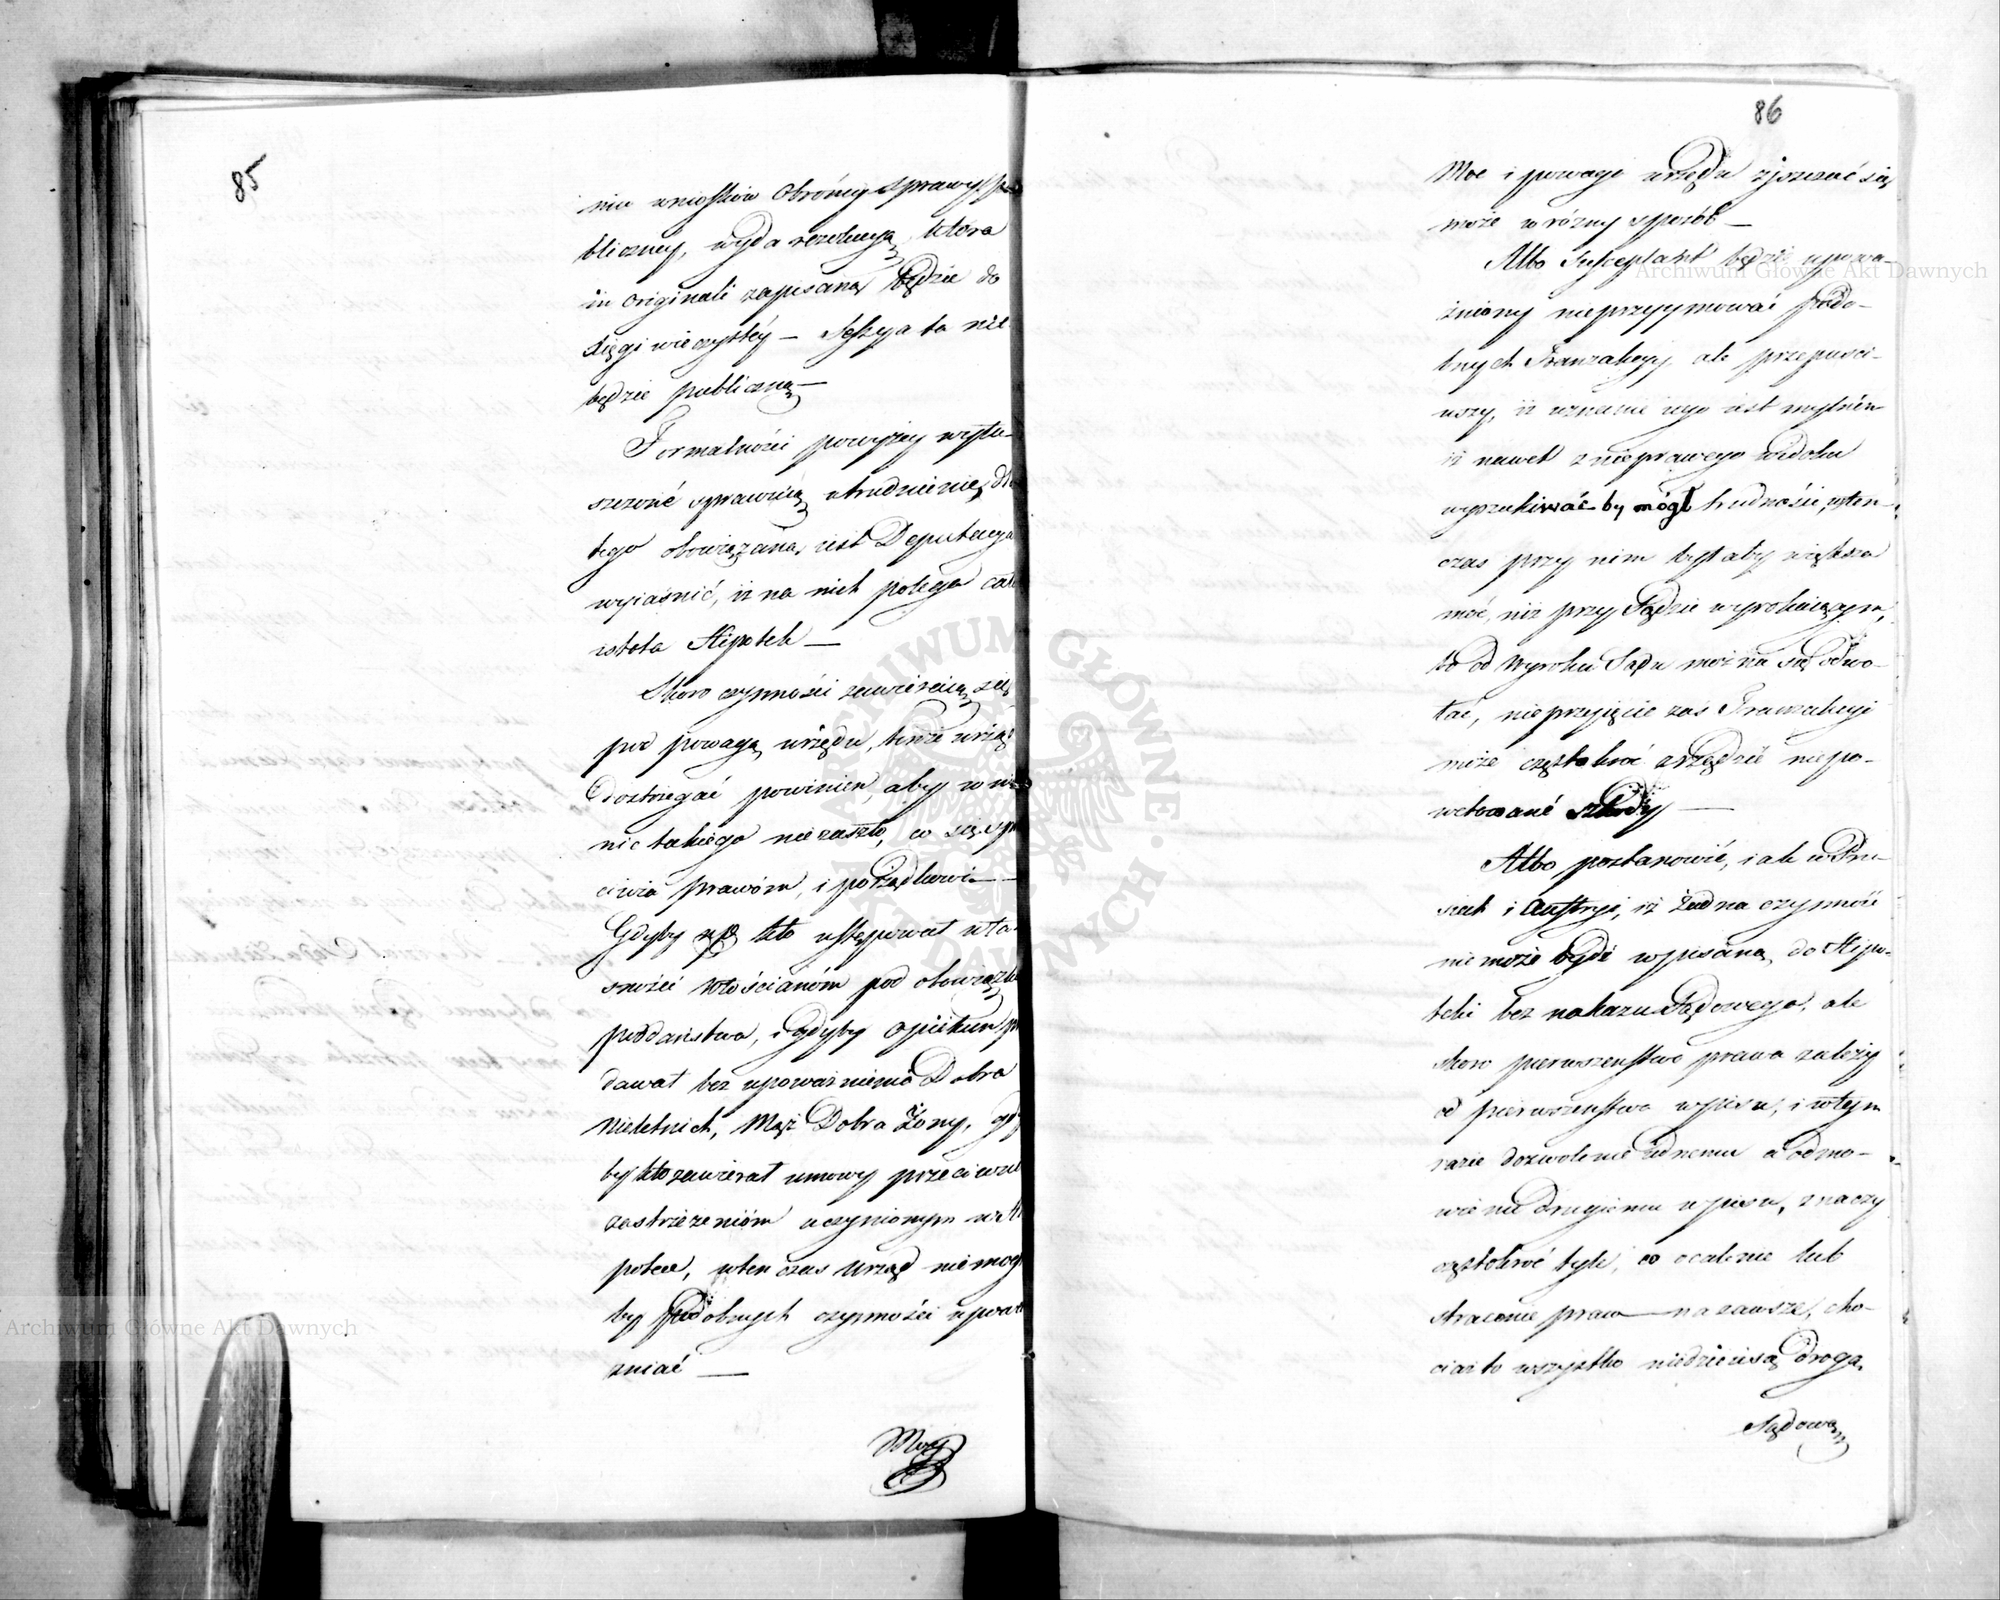 85
niu wniosków Obrońcy sprawy pu
bliczney, wyda rezolucyą, która
in originali zapisaną będzie do
Xięgi wieczystéy — Sessya ta nie
będzie publiczną —
Formalności powyżey wytu-
szczoné sprawuią utrudnienie, dla
tego obowiązaną iest Deputacya
wyiaśnić, iż na nich polega cała
istota Hipotek —
Skoro czynności zawieraią się
pod powagą urzędu, tenże urząd
dostrzegać powinien, aby w
nic takiego nie zaszło, co się
ciwia prawóm, i porządkowi —
Gdyby np. kto ustępował wła-
sności Włościanóm pod obowiązkie
poddaństwa, i gdyby opiekun
dawał bez upoważnienia Dobra
Nieletnich, Mąż Dobra Żony, gdy
by kto zawierał umowy przeciwne
zastrzeżenióm uczynionym w Hi
potece, wten czas Urząd niemógł
by podobnych czynności upowa
żniać —
Moc
86
Moc i powaga urzędu ziszczać się
może w różny sposób —
Albo Susceptant będzie upowa-
żniony nieprzyymować podo-
bnych Tranzakcyj, ale przypuści-
wszy, iż uznanie iego iest mylném
iż nawet z nieprawego widoku
wyszukiwać by mógł trudności, wten-
czas przy nim byłaby większa
moc, niż przy Sądzie wyrokuiącym,
bo od Wyroku Sądu można się odwo-
łać, nieprzyięcie zaś Tranzakcyi
może częstokroć zrządzić niepo-
wetowané szkody —
Albo postanowić, iak w Pru-
siech i Austryi, iż żadna czynność
nie może bydź wpisaną do Hipo-
teki bez nakazu Sądowego, ale
skoro pierwszeństwo prawa zależy
od pierwszeństwa wpisu, i w tym
razie dozwolenie iednemu a odmo-
wienie drugiemu wpisu, znaczy
częstokroć tyle, co ocalenie lub
stracenie praw na zawsze, cho-
ciaż to wszystko niedzieie się drogą
Sądową
Archiwum Główne Akt Dawnych
Archiwum Główne Akt Dawnych
ARCHIWUM GŁÓWNE AKT DAWNYCH